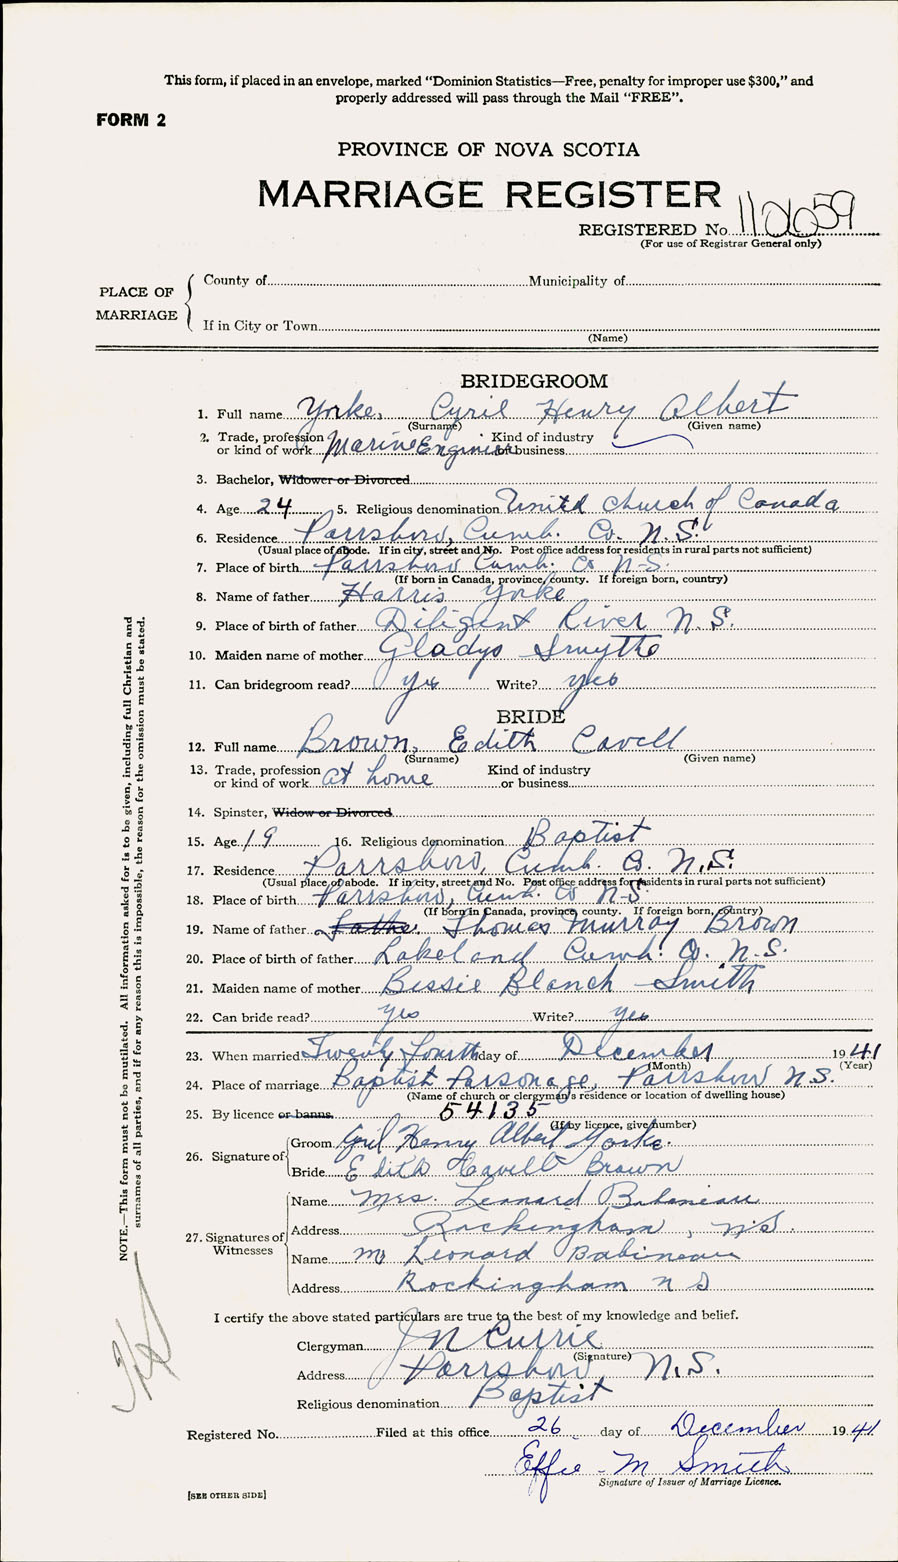 This form, if placed in an envelope, marked “Dominion Statistics—Free, penalty for improper use $300,” and
properly addressed will pass through the Mail “FREE”.
FORM 2
PROVINCE OF NOVA SCOTIA
MARRIAGE REGISTER
REGISTERED No.
(For use of Registrar General only)
PLACE OF MARRIAGE
County of Municipality of
If in City or Town
(Name)
BRIDEGROOM
1. Full name Yorke, Cyril Henry Albert
(Surname) (Given name)
2. Trade, profession or kind of work Marine Engineer Kind of industry or business
3. Bachelor, Widower or Divorced
4. Age 24 5. Religious denomination United Church of Canada
6. Residence Parrsboro, Cumb. Co. N.S.
(Usual place of abode. If in city, street and No. Post office address for residents in rural parts not sufficient)
7. Place of birth Parrsboro Cumb. Co N-S.
(If born in Canada, province, county. If foreign born, country)
8. Name of father Harris Yorke
9. Place of birth of father Diligent River N.S.
10. Maiden name of mother Gladys Smythe
11. Can bridegroom read? yes Write? yes
BRIDE
12. Full name Brown, Edith Cavell
(Surname) (Given name)
13. Trade, profession or kind of work at home Kind of industry or business
14. Spinster, Widow or Divorced
15. Age 19 16. Religious denomination Baptist
17. Residence Parrsboro, Cumb. Co. N.S.
(Usual place of abode. If in city, street and No. Post office address for residents in rural parts not sufficient)
18. Place of birth Parrsboro, Cumb. Co N-S
(If born in Canada, province, county. If foreign born, country)
19. Name of father Thomas Murray Brown
20. Place of birth of father Lakeland Cumb. Co. N.S.
21. Maiden name of mother Bessie Blanch Smith
22. Can bride read? yes Write? yes
23. When married Twenty Fourth day of December 1941
(Month) (Year)
24. Place of marriage Baptist Parsonage, Parrsboro N.S.
(Name of church or clergyman's residence or location of dwelling house)
25. By licence or banns. 54135
(If by licence, give number)
26. Signature of
Groom Cyril Henry Albert Yorke.
Bride Edith Cavell Brown
27. Signatures of Witnesses
Name Mrs. Leonard Babineau
Address Rockingham, N.S.
Name Mr Leonard Babineau
Address Rockingham N S
I certify the above stated particulars are true to the best of my knowledge and belief.
Clergyman J N Currie
(Signature)
Address Parrsboro, N.S.
Religious denomination Baptist
Registered No. Filed at this office 26 day of December 1941
Effie M Smith
Signature of Issuer of Marriage Licence.
[SEE OTHER SIDE]
NOTE.—This form must not be mutilated. All information asked for is to be given, including full Christian and
surnames of all parties, and if for any reason this is impossible, the reason for the omission must be stated.